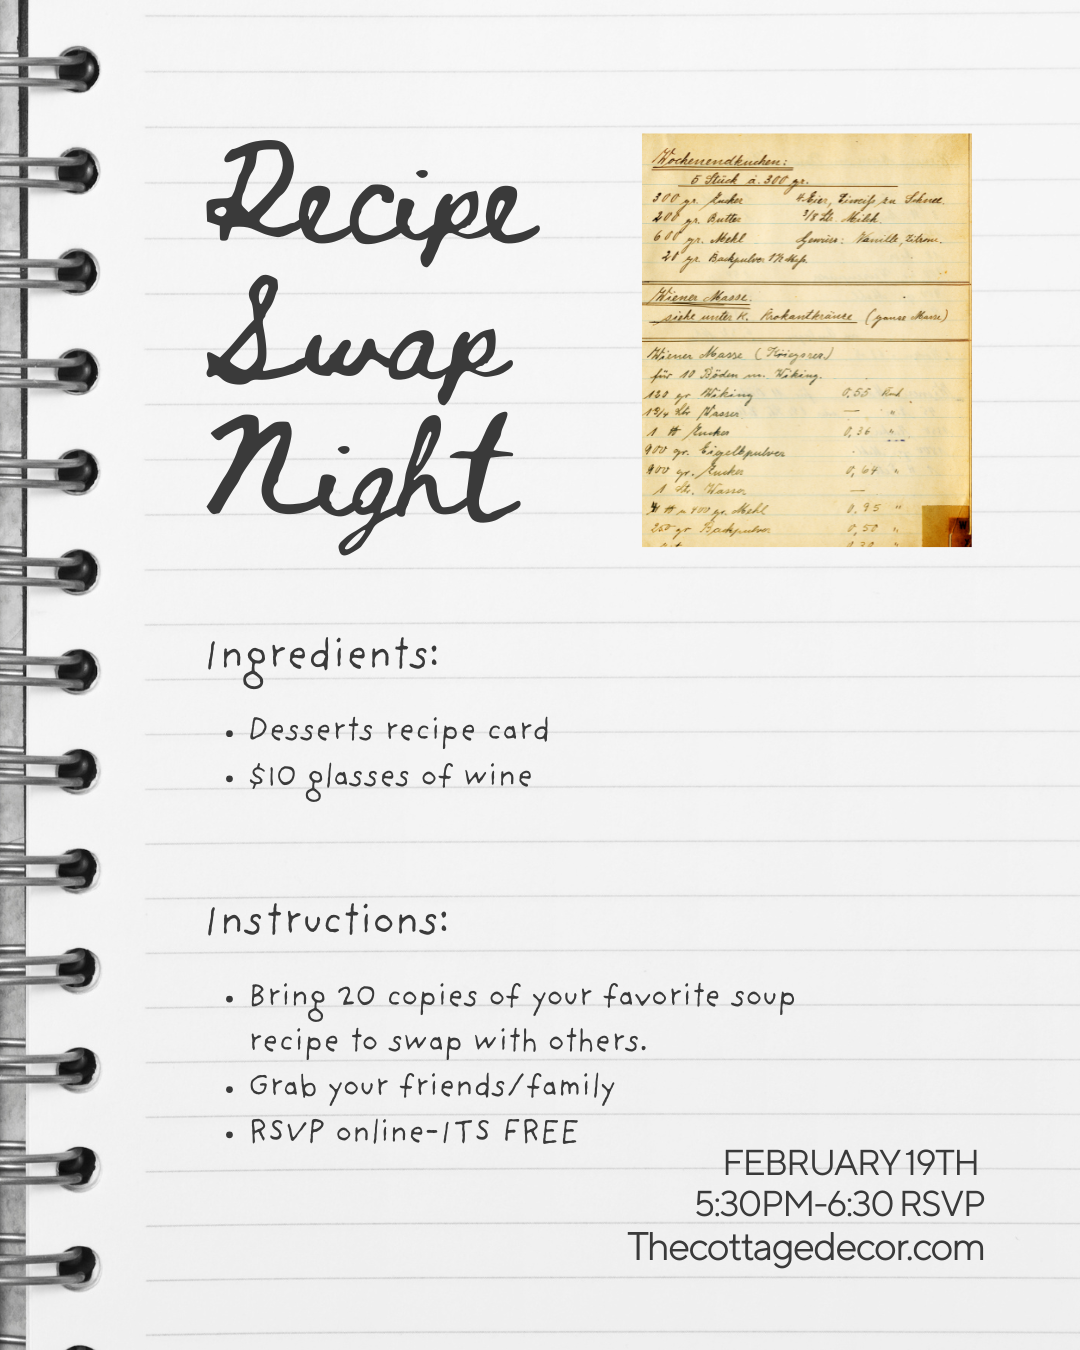 Recipe
Swap
Night
Wochenendkuchen:
5 Stück à. 300 gr.
300 gr. Zucker 4 Eier, Eiweiß zu Schnee.
200 gr. Butter 3/8 Ltr. Milch.
600 gr. Mehl Gewürz: Vanille, Zitron.
20 gr. Backpulver
Wiener Masse.
siehe unter K. Krokantkränze (ganze Masse)
Wiener Masse
für 10 Böden m. Wiking.
120 gr Wiking 0,55
1 3/4 Ltr Wasser — "
1 ℔ Zucker 0,36 "
900 gr. Eigelbpulver
900 gr. Zucker 0,64 "
1 Ltr. Wasser —
400 gr. Mehl 0,95 "
250 gr Backpulver 0,50 "
Ingredients:
• Desserts recipe card
• $10 glasses of wine
Instructions:
• Bring 20 copies of your favorite soup
recipe to swap with others.
• Grab your friends/family
• RSVP online-ITS FREE
FEBRUARY 19TH
5:30PM-6:30 RSVP
Thecottagedecor.com